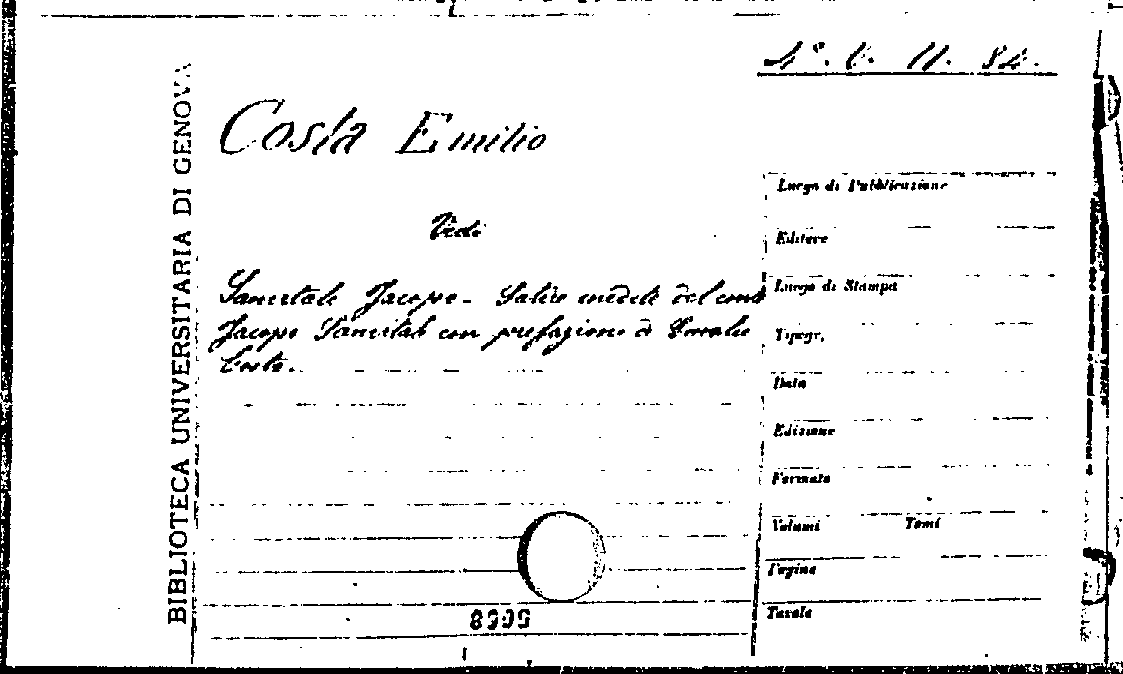 4°. V. 11. 84.
BIBLIOTECA UNIVERSITARIA DI GENOVA
Costa Emilio
Vedi
Sanvitale Jacopo - Satire inedite del conte
Jacopo Sanvitale con prefazione di Emilio
Costa.
Luogo di Pubblicazione
Editore
Luogo di Stampa
Tipogr.
Data
Edizione
Formato
Volumi Tomi
Pagine
Tavole